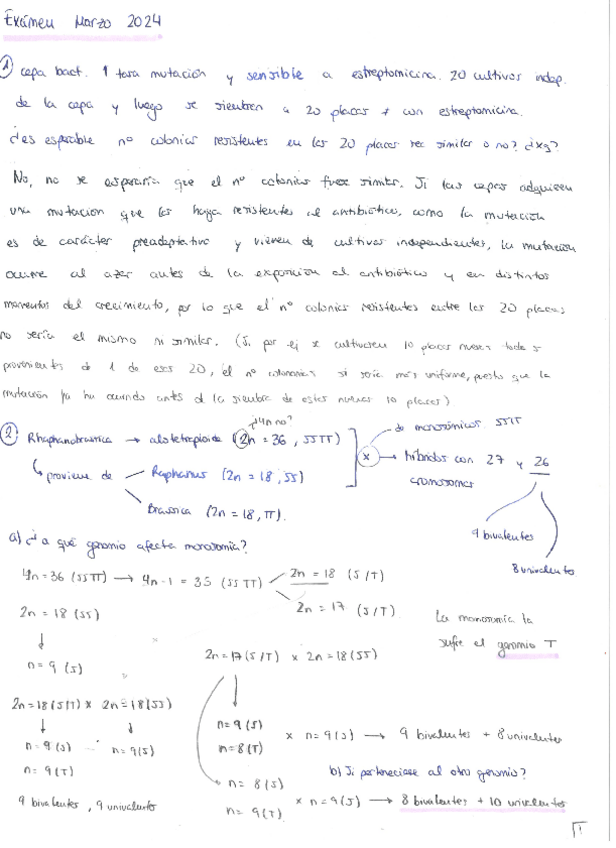 Exámen Marzo 2024
1) cepa bact. 1 tasa mutación y sensible a estreptomicina. 20 cultivos indep.
de la cepa y luego se siembren a 20 placas + con estreptomicina.
¿es esperable nº colonias resistentes en las 20 placas sea similar o no? ¿xq?
No, no se esperaría que el nº colonias fuese similar. Si las cepas adquieren
una mutación que las haga resistentes al antibiótico, como la mutación
es de carácter preadaptativo y vienen de cultivos independientes, la mutación
ocurre al azar antes de la exposición al antibiótico y en distintos
momentos del crecimiento, por lo que el nº colonias resistentes entre las 20 placas
no sería el mismo ni similar. (Si, por ej se cultivasen 10 placas nuevas todas
provenientes de 1 de esas 20, el nº colonias si sería más uniforme, puesto que la
mutación ya ha ocurrido antes de la siembra de estas nuevas 10 placas)
¿4n no?
2) Rhaphanobrassica → alotetraploide (2n = 36, SSTT)
x
de monosómicos SSTT
híbridos con 27 y 26
cromosomas
proviene de
Raphanus (2n = 18, SS)
Brassica (2n = 18, TT).
9 bivalentes
8 univalentes
a) ¿a qué genomio afecta monosomía?
4n = 36 (SSTT) → 4n - 1 = 35 (SSTT)
2n = 18 (S/T)
2n = 17 (S/T)
La monosomía la
sufre el genomio T
2n = 18 (SS)
↓
n = 9 (S)
2n = 17 (S/T) x 2n = 18 (SS)
2n = 18 (S/T) x 2n = 18 (SS)
n = 9 (S) n = 9 (S)
n = 9 (T)
9 bivalentes, 9 univalentes
n = 9 (S)
n = 8 (T)
x n = 9 (S) → 9 bivalentes + 8 univalentes
b) Si perteneciese al otro genomio?
n = 8 (S)
n = 9 (T)
x n = 9 (S) → 8 bivalentes + 10 univalentes
1